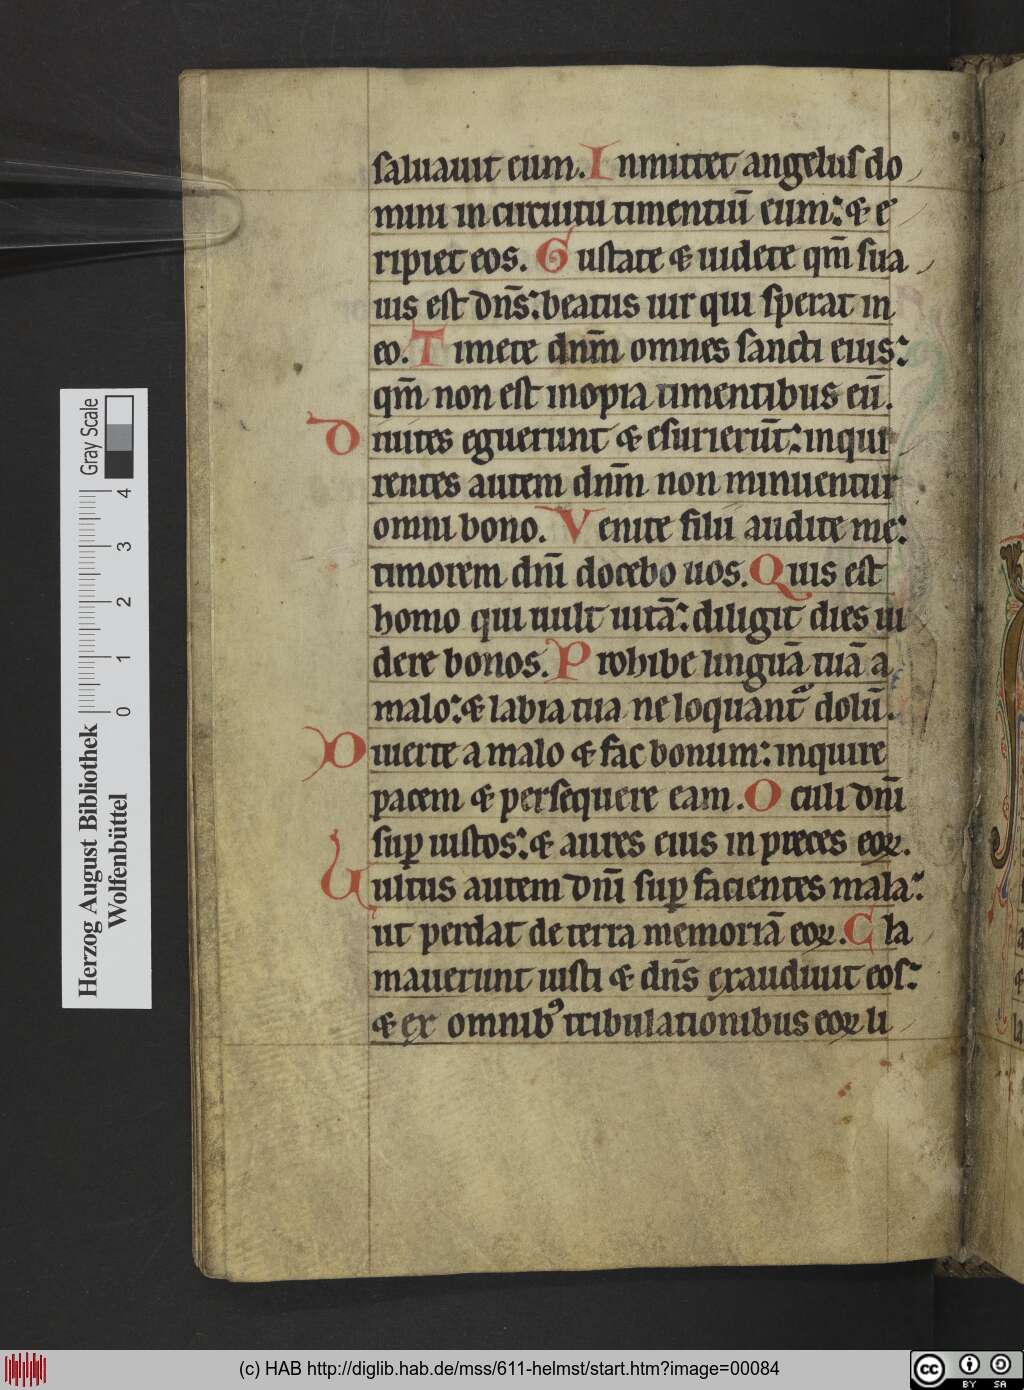 saluauit eum. Inmittet angelus do
mini in circuitu timentiū eum: & e
ripiet eos. Gustate & uidete qm̄ sua
uis est dn̄s: beatus uir qui sperat in
eo. Timete dnm̄ omnes sancti eius:
qm̄ non est inopia timentibus eū.
Diuites eguerunt & esurierūt: inqui
rentes autem dnm̄ non minuentur
omni bono. Venite filii audite me:
timorem dn̄i docebo uos. Quis est
homo qui uult uitā: diligit dies ui
dere bonos. Prohibe linguā tuā a
malo: & labia tua ne loquant᷑ dolū.
Diuerte a malo & fac bonum: inquire
pacem & persequere eam. Oculi dn̄i
sup̱ iustos: & aures eius in preces eoꝝ.
Uultus autem dn̄i sup̱ facientes mala:
ut perdat de terra memoriā eoꝝ. Cla
mauerunt iusti & dn̄s exaudiuit eos:
& ex omnibꝰ tribulationibus eoꝝ li
Herzog August Bibliothek
Wolfenbüttel
0 1 2 3 4
Gray Scale
(c) HAB http://diglib.hab.de/mss/611-helmst/start.htm?image=00084
cc BY SA